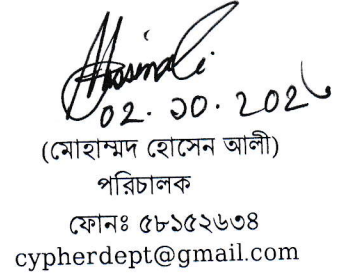 (মোহাম্মদ হোসেন আলী)
পরিচালক
ফোনঃ ৫৮১৫২৬৩৪
cypherdept@gmail.com